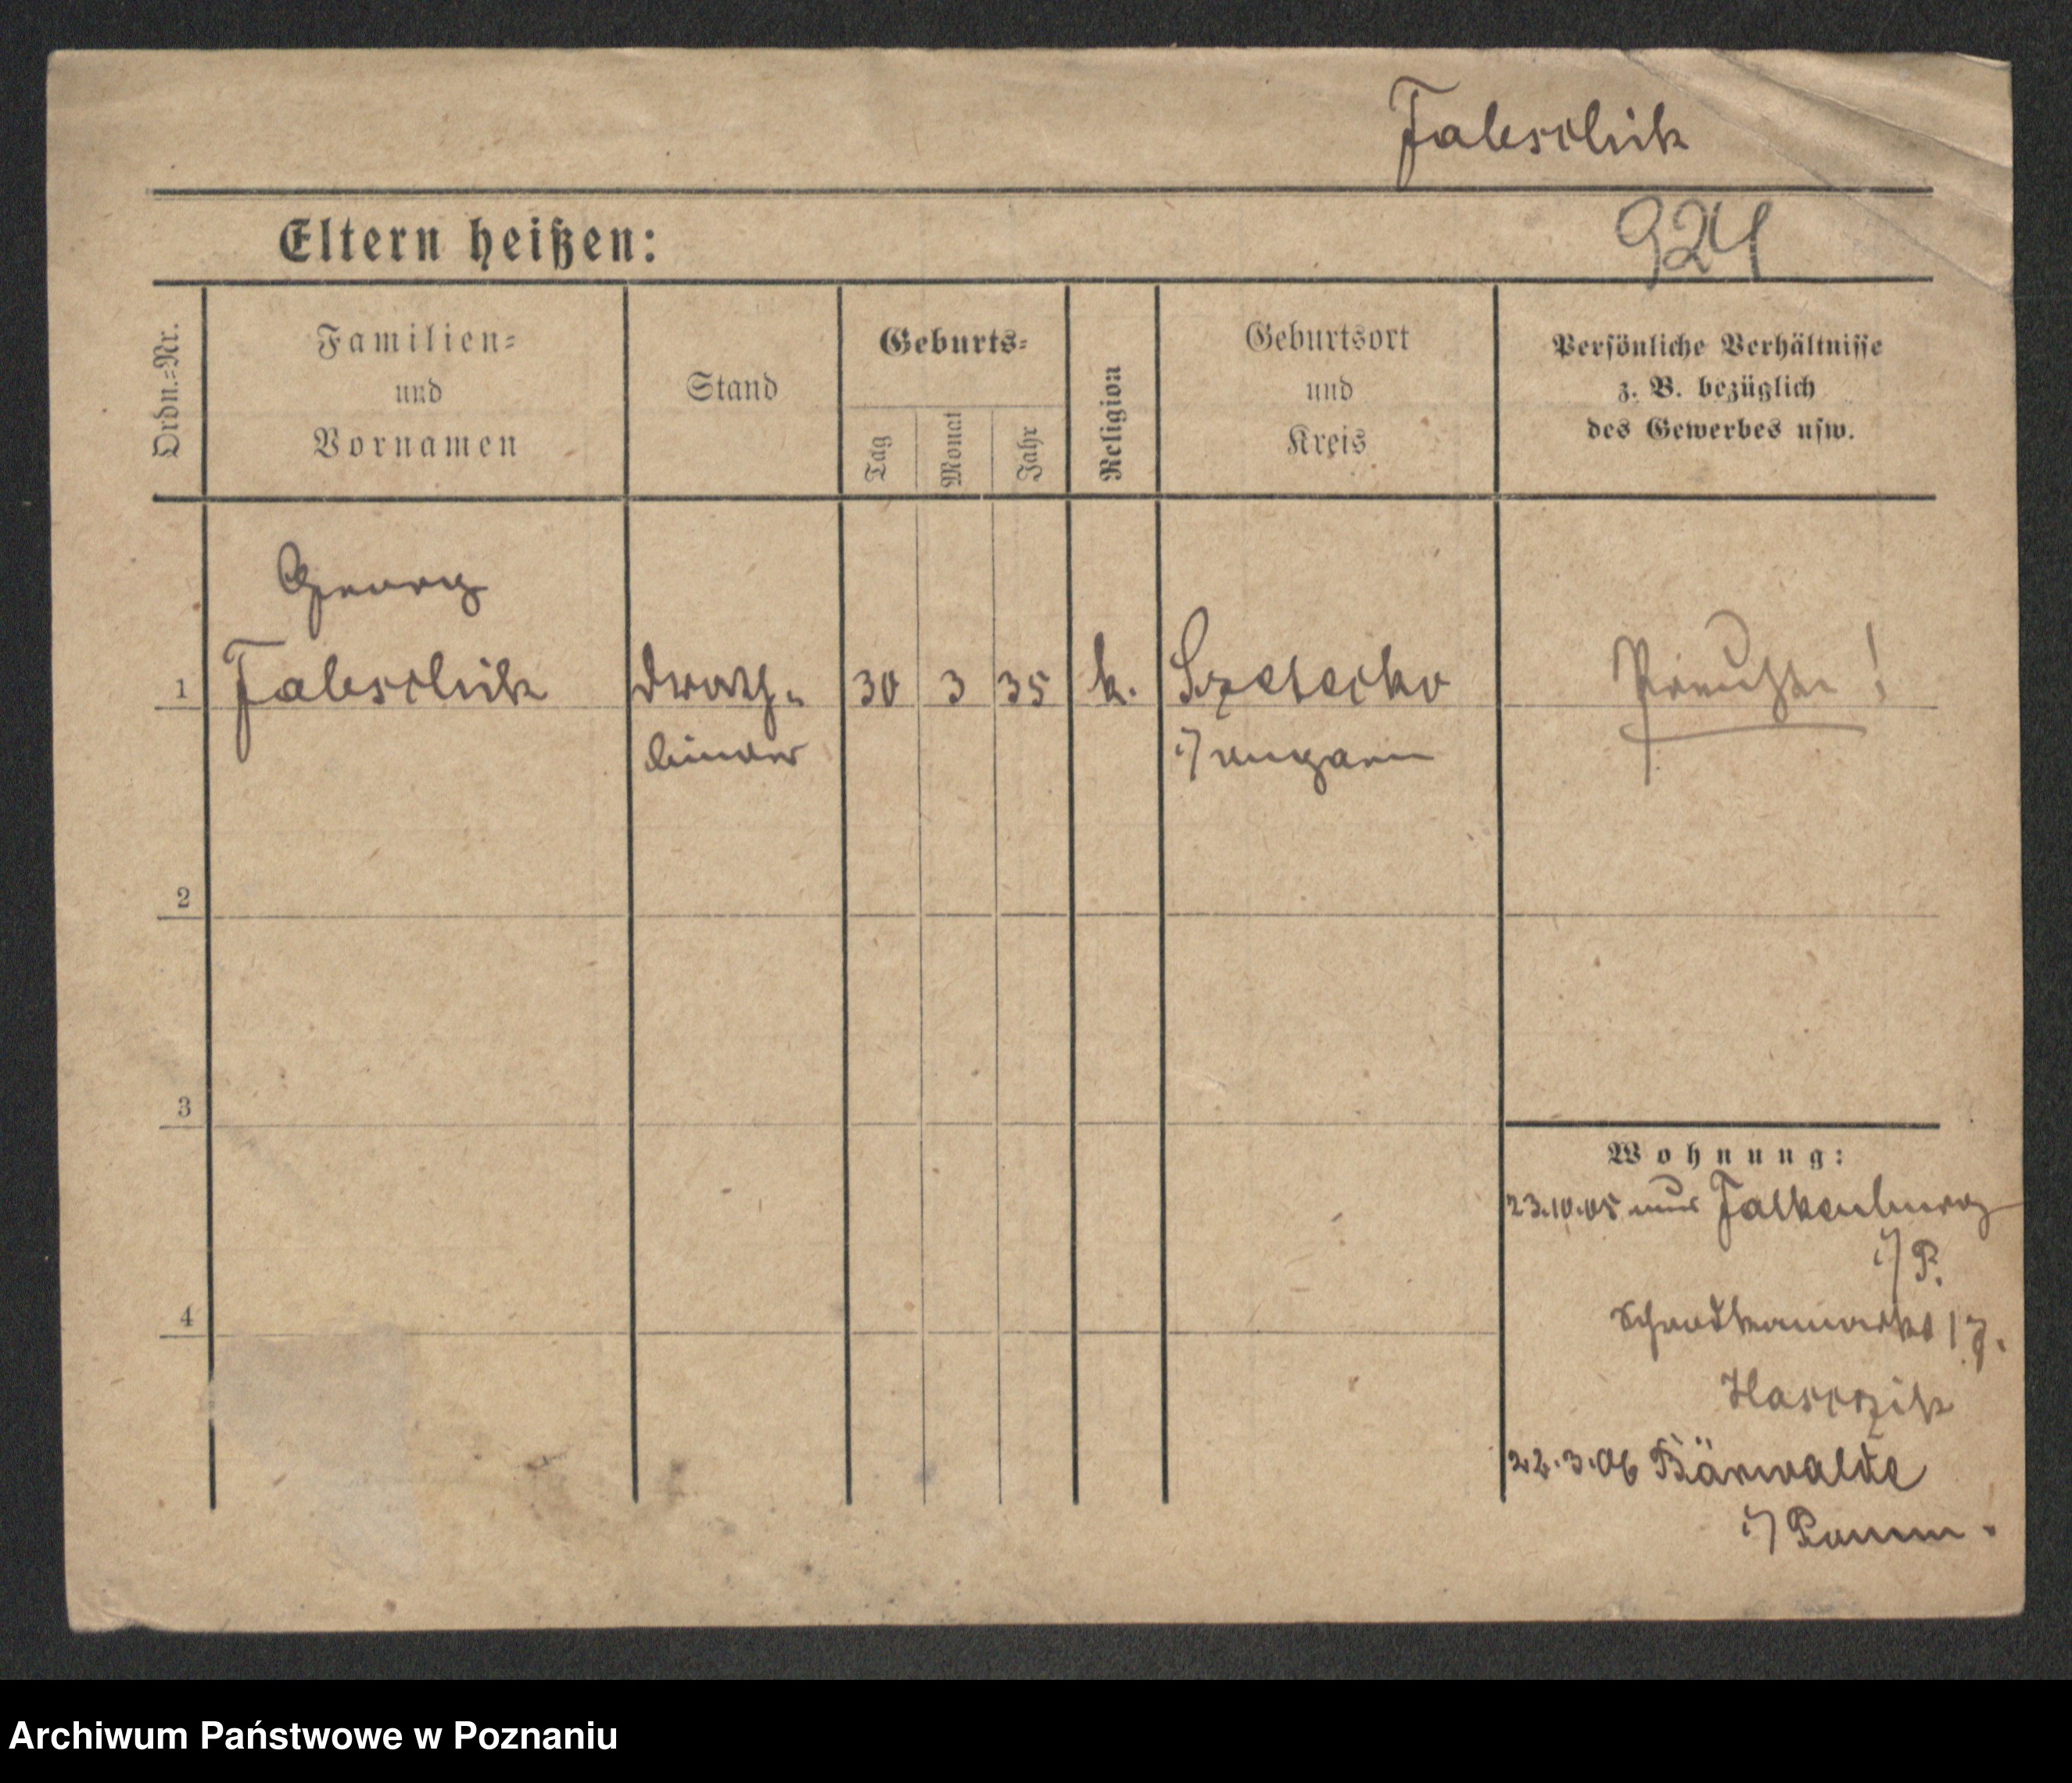 Jabeschik
Eltern heißen:
924
Ordn.=Nr.
Familien=
und
Vornamen
Stand
Geburts=
Tag
Monat
Jahr
Religion
Geburtsort
und
Kreis
Persönliche Verhältnisse
z. B. bezüglich
des Gewerbes usw.
Georg
1 Draht- 30 3 35 k. Preuße!
binder i/ Ungarn
2
3
4
Wohnung:
23.10.05 nach Falkenburg
i/ P.
22.3.06 Bärwalde
i/ Pomm.
Archiwum Państwowe w Poznaniu